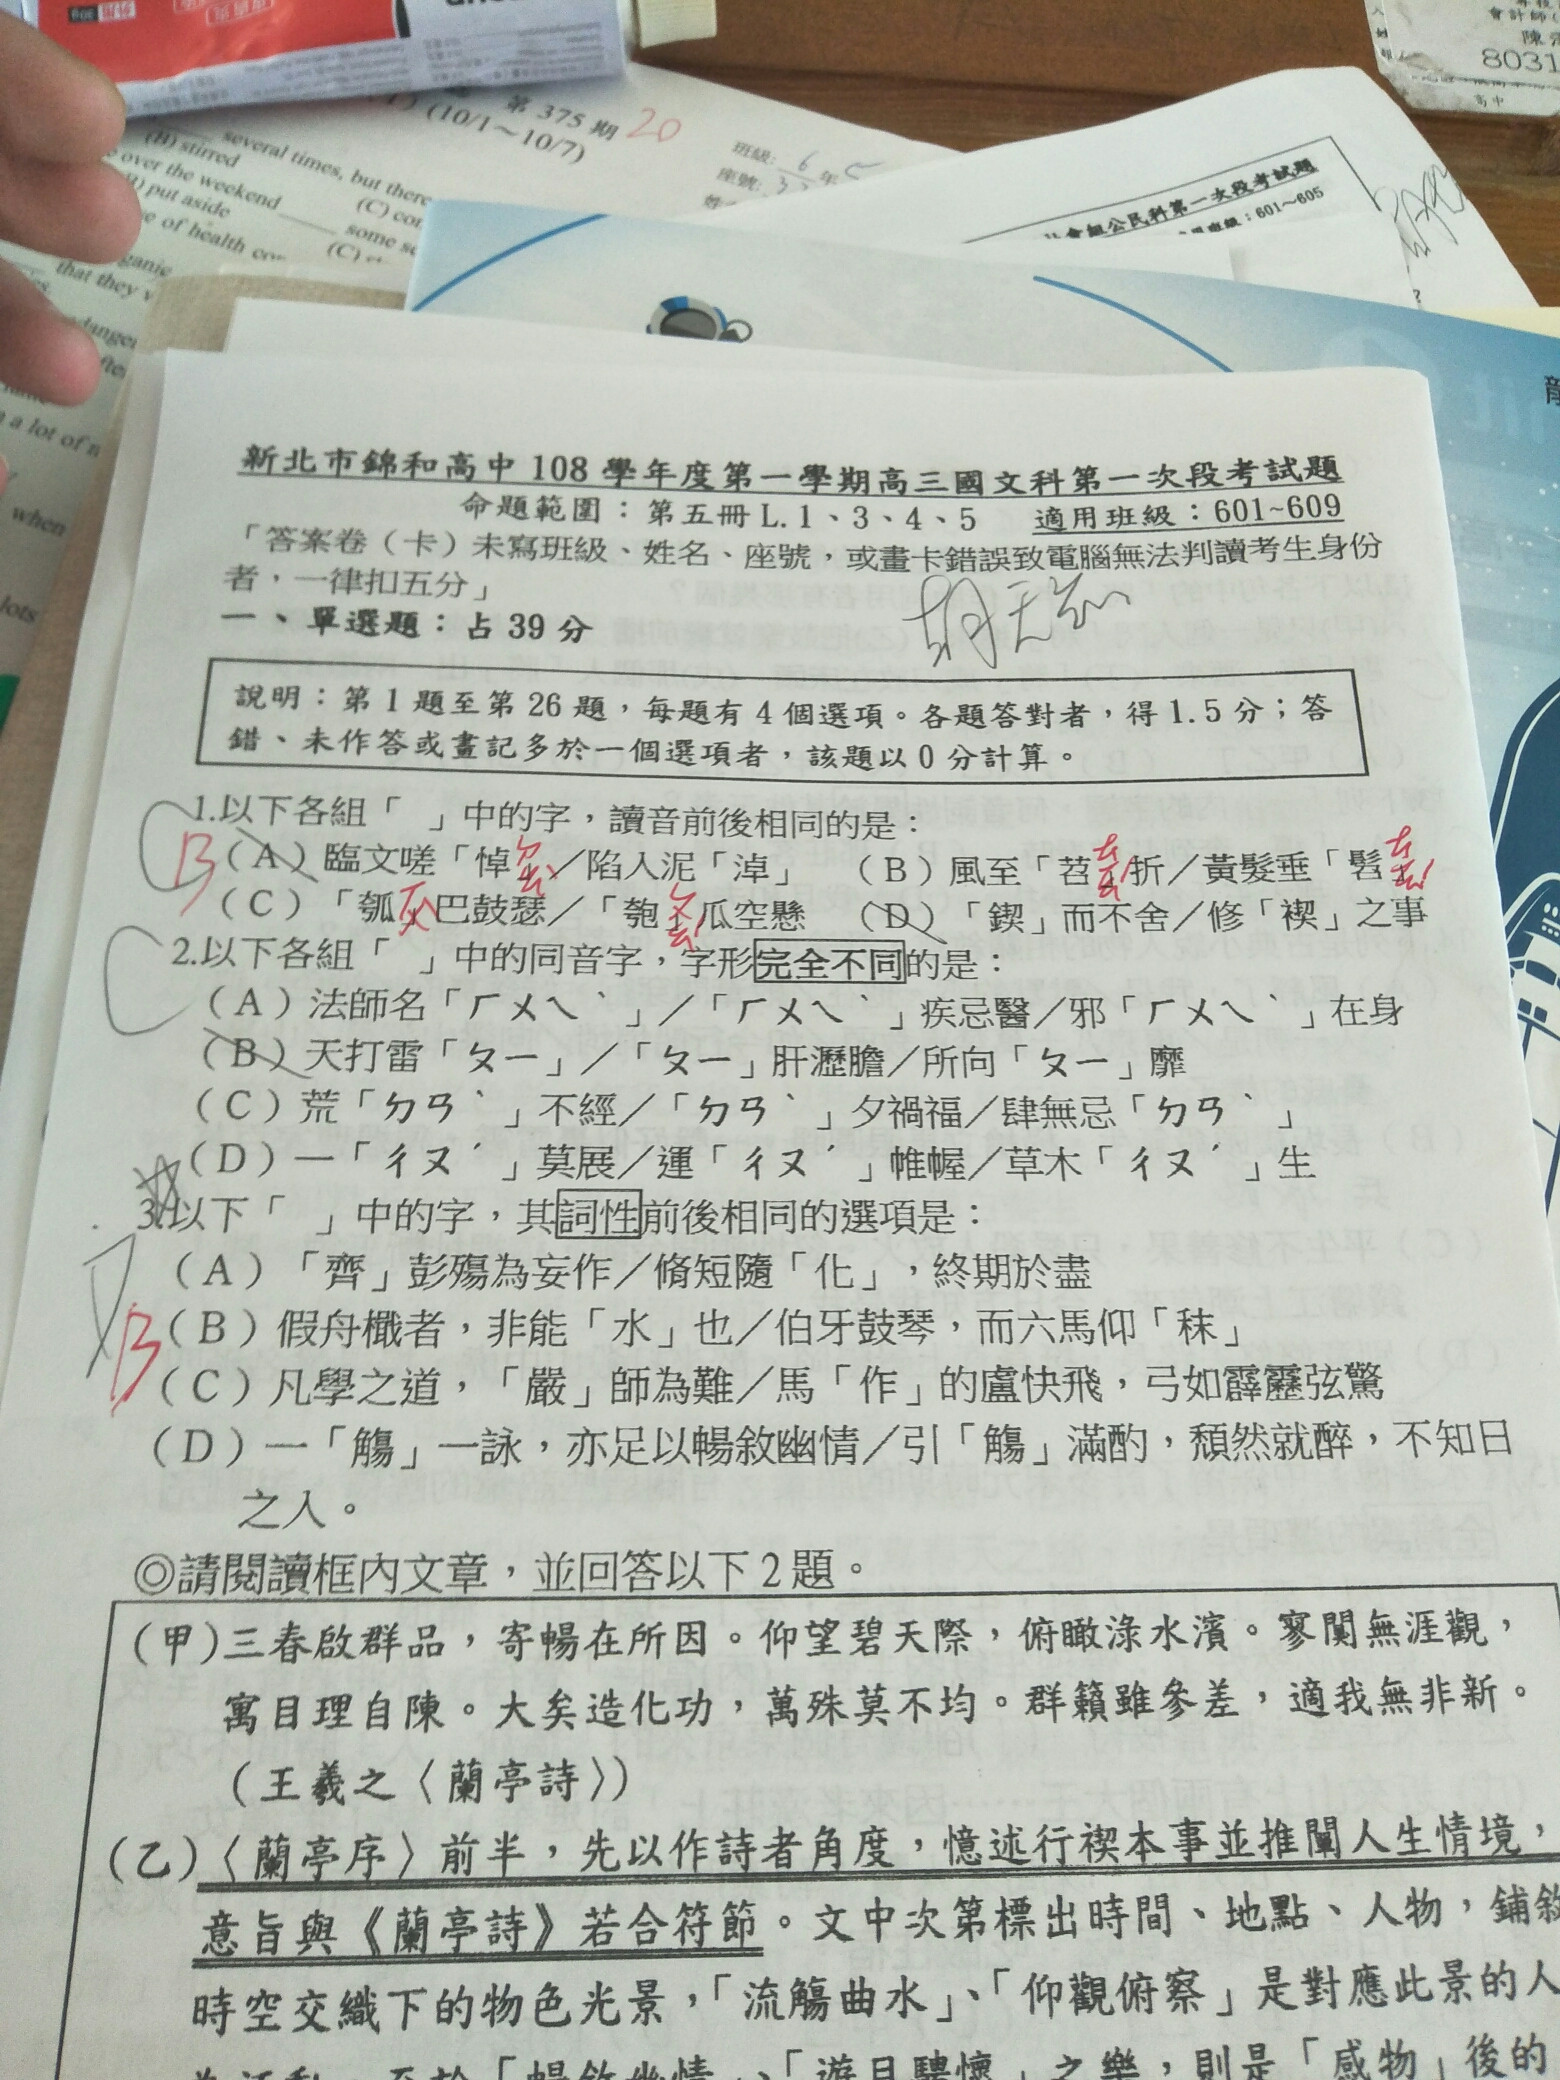 第 375 期 20
(10/1～10/7)
班級: 6 年
座號:
several times, but there
(B) stirred
over the weekend ____ some
(C)
put aside
of health
(C)
that they
a lot of
when
lots
會計師
8031
高中
社會組公民科第一次段考試題
班級：601～605
新北市錦和高中 108 學年度第一學期高三國文科第一次段考試題
命題範圍：第五冊 L. 1、3、4、5 適用班級：601~609
「答案卷（卡）未寫班級、姓名、座號，或畫卡錯誤致電腦無法判讀考生身份
者，一律扣五分」
一、單選題：占 39 分
說明：第 1 題至第 26 題，每題有 4 個選項。各題答對者，得 1.5 分；答
錯、未作答或畫記多於一個選項者，該題以 0 分計算。
C 1.以下各組「 」中的字，讀音前後相同的是：
B （A）臨文嗟「悼」／陷入泥「淖」 （B）風至「苕」折／黃髮垂「髫」
（C）「瓠」巴鼓瑟／「匏」瓜空懸 （D）「鍥」而不舍／修「禊」之事
C 2.以下各組「 」中的同音字，字形完全不同的是：
（A）法師名「ㄏㄨㄟˋ」／「ㄏㄨㄟˋ」疾忌醫／邪「ㄏㄨㄟˋ」在身
（B）天打雷「ㄆㄧ」／「ㄆㄧ」肝瀝膽／所向「ㄆㄧ」靡
（C）荒「ㄉㄢˋ」不經／「ㄉㄢˋ」夕禍福／肆無忌「ㄉㄢˋ」
（D）一「ㄔㄡˊ」莫展／運「ㄔㄡˊ」帷幄／草木「ㄔㄡˊ」生
3.以下「 」中的字，其詞性前後相同的選項是：
（A）「齊」彭殤為妄作／脩短隨「化」，終期於盡
B （B）假舟檝者，非能「水」也／伯牙鼓琴，而六馬仰「秣」
（C）凡學之道，「嚴」師為難／馬「作」的盧快飛，弓如霹靂弦驚
（D）一「觴」一詠，亦足以暢敘幽情／引「觴」滿酌，頹然就醉，不知日
之入。
◎請閱讀框內文章，並回答以下 2 題。
（甲）三春啟群品，寄暢在所因。仰望碧天際，俯瞰淥水濱。寥闃無涯觀，
寓目理自陳。大矣造化功，萬殊莫不均。群籟雖參差，適我無非新。
（王羲之〈蘭亭詩〉）
（乙）〈蘭亭序〉前半，先以作詩者角度，憶述行禊本事並推闡人生情境，
意旨與《蘭亭詩》若合符節。文中次第標出時間、地點、人物，鋪敘
時空交織下的物色光景，「流觴曲水」、「仰觀俯察」是對應此景的人
為活動，至於「暢敘幽情」、「遊目騁懷」之樂，則是「感物」後的